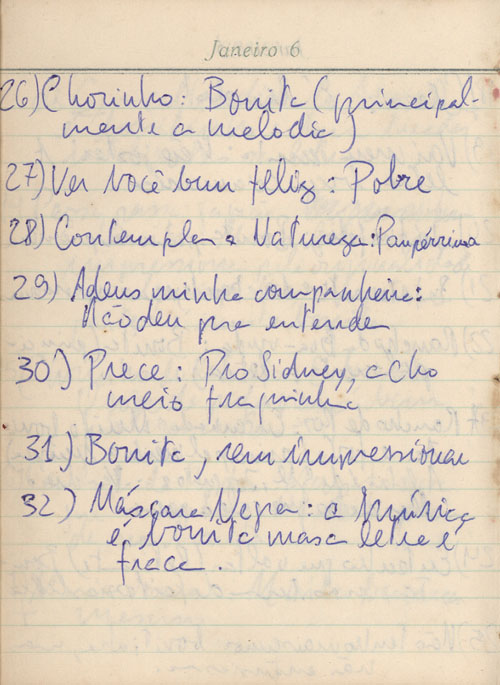 Janeiro 6
26) Chorinho: Bonita (principal-
mente a melodia)
27) Ver você bem feliz: Pobre
28) Contemplar a Natureza: Paupérrima
29) Adeus minha companheira:
Não deu pra entender
30) Prece: Pro Sidney, acho
meio fraquinha
31) Bonita, sem impressionar
32) Máscara Negra: a música
é bonita mas a letra é
fraca.